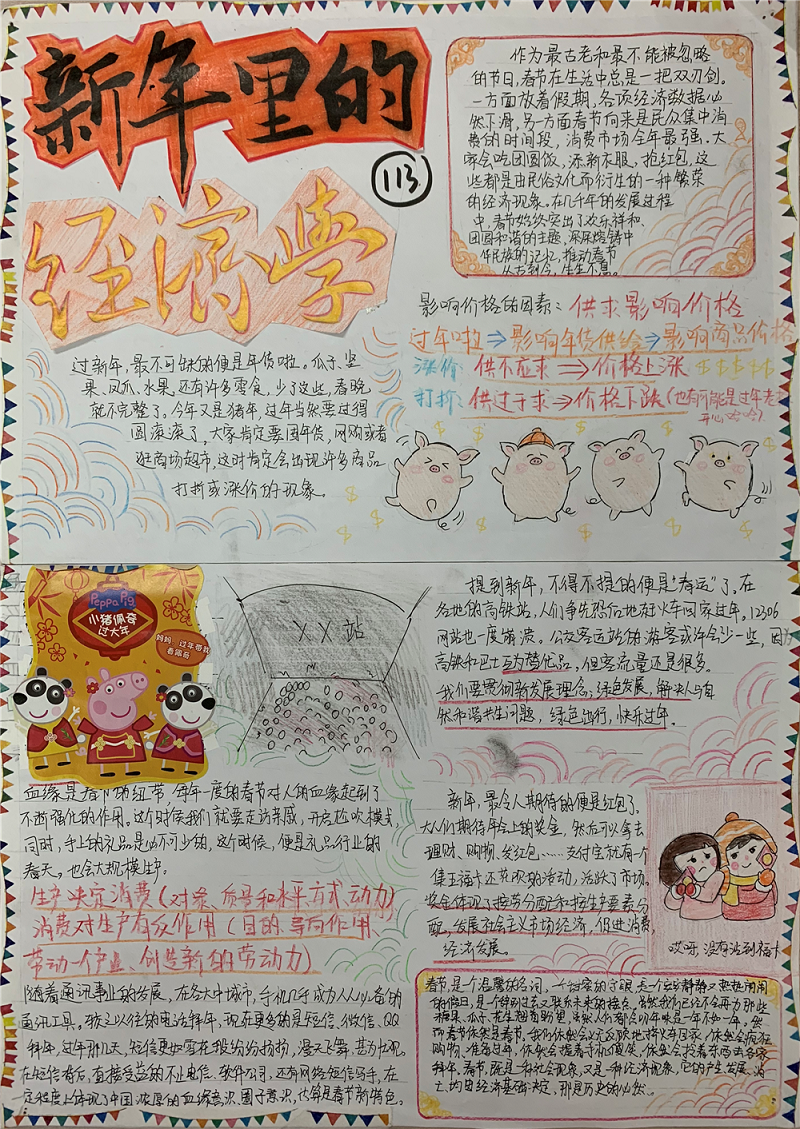 新年里的
经济学
113
作为最古老和最不能被忽略
的节日,春节在生活中总是一把双刃剑。
一方面放着假期,各项经济数据必
然下滑,另一方面春节向来是民众集中消
费的时间段,消费市场全年最强。大
家会吃团圆饭,添新衣服,抢红包,这
些都是由民俗文化而衍生的一种繁荣
的经济现象。在几千年的发展过程
中,春节始终突出了欢乐祥和、
团圆和谐的主题,深深熔铸中
华民族的记忆,推动春节
从古到今,生生不息。
影响价格的因素:供求影响价格
过年啦⇒影响年货供给⇒影响商品价格
涨价:供不应求⇒价格上涨
打折:供过于求⇒价格下跌(也有可能是过年老板
开心哈哈)
过新年,最不可缺的便是年货啦。瓜子、坚
果、凤爪、水果,还有许多零食,少了这些,春晚
就不完整了。今年又是猪年,过年当然要过得
圆滚滚了,大家肯定要囤年货,网购或者
逛商场超市,这时肯定会出现许多商品
打折或涨价的现象。
Peppa Pig
小猪佩奇
过大年
妈妈,过年带我
看佩奇
XX站
提到新年,不得不提的便是“春运”了。在
各地的高铁站,人们争先恐后地赶火车回家过年。12306
网站也一度崩溃。公交客运站的游客或许会少一些,因为
高铁和巴士互为替代品,但客流量还是很多。
我们要贯彻新发展理念,绿色发展,解决人与自
然和谐共生问题,绿色出行,快乐过年。
血缘是春节的纽带,每年一度的春节对人的血缘起到了
不断强化的作用。这个时候我们就要走访亲戚,开启吃吹模式
同时,手上的礼品是必不可少的,这个时候,便是礼品行业的
春天。也会大规模生产。
生产决定消费(对象、质量和水平、方式、动力)
消费对生产有反作用(目的、导向作用、
劳动一个产品、创造新的劳动力)
新年,最令人期待的便是红包了。
大人们期待年会上的奖金,然后可以拿去
理财、购物、发红包……支付宝就有一个
集五福卡还节欢的活动,活跃了市场。
奖金体现了按劳分配和按生产要素分
配,发展社会主义市场经济,促进消费,
经济发展。
哎呀,没有沾到福卡
随着通讯事业的发展,在各大中城市,手机几乎成为人人必备的
通讯工具。较之以往的电话拜年,现在更多的是短信、微信、QQ
拜年,过年那几天,短信更如雪花般纷纷扬扬,漫天飞舞,甚为壮观。
在短信背后,直接受益的不止电信、软件公司,还有网络短信写手,在
一定程度上体现了中国浓厚的血缘意识、圈子意识,也算是春节新特色。
春节,是个温馨的名词,一个甜蜜的字眼,是一个安静静又热热闹闹
的假日,是一个辞别过去又联系未来的接点,虽然我们已经不再为那些
糖果、瓜子、花生翘首盼望,虽然人们都会叨年味是一年不如一年。然
而春节依然是春节。我们依然会义无反顾地挤火车回家,依然会疯狂
购物、准备过年,依然会捏着手机傻笑,依然会拎着东西去各家
拜年。春节,既是一种社会现象,又是一种经济现象,它的产生、发展、消
亡,均由经济基础决定,那是历史的必然。